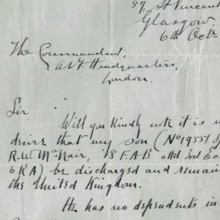 57 St Vincent
Glasgow
6th Octr
The Commandant,
A.I.F Headquarters,
London.
Sir
Will you kindly note it is
desire that my son (No 1955
R.W. McNair, 18 F.A.B. attd 2nd
6RA) be discharged and remain
the United Kingdom.
He has no dependents in